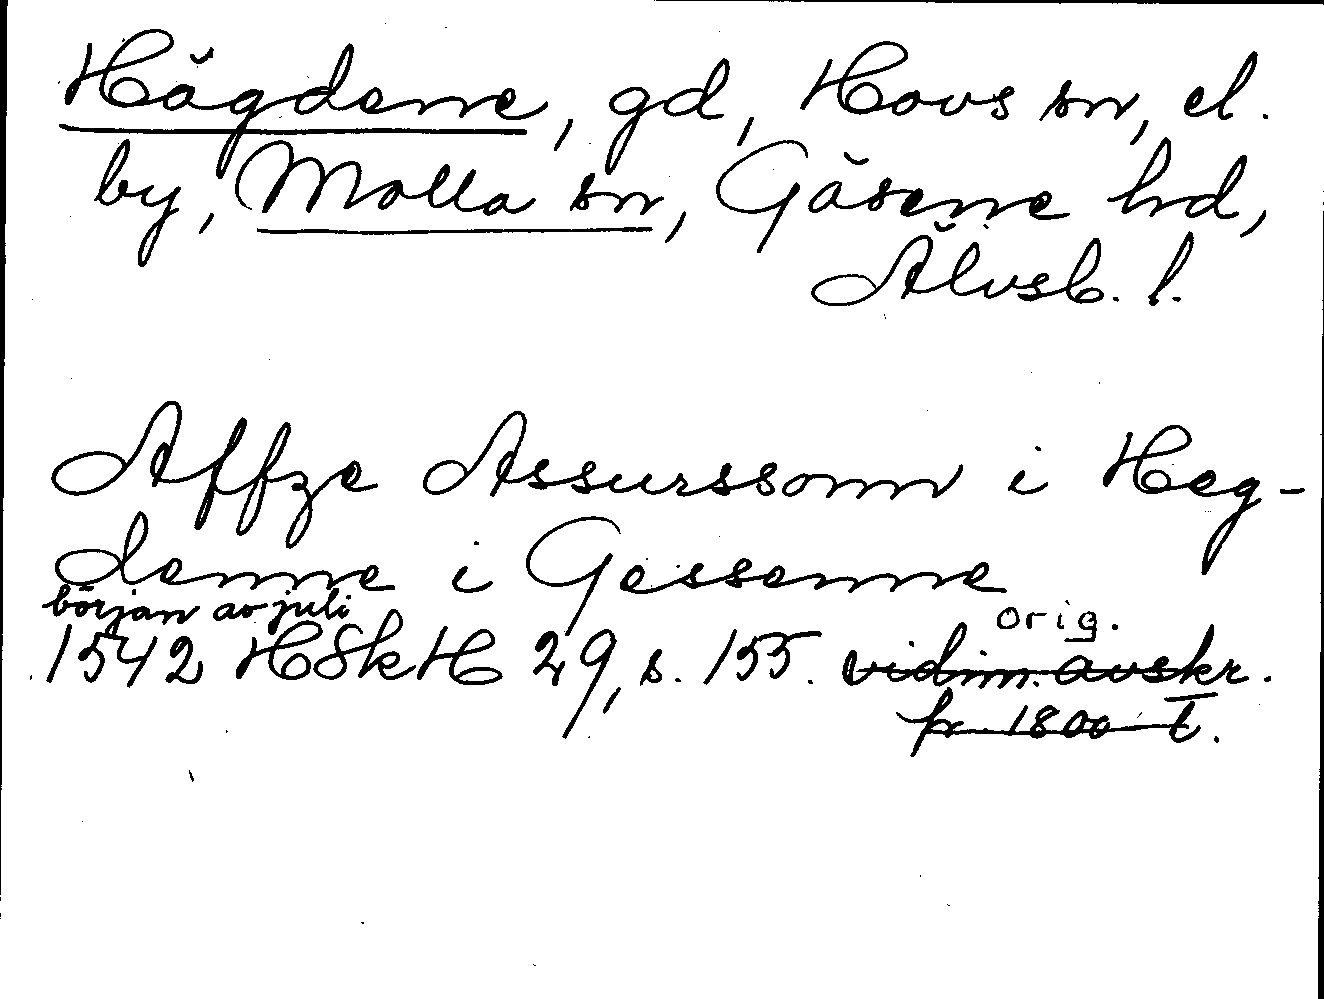 Högdene, gd, Hovs sn, el.
by, Molla sn, Gäsene hd,
Älvsb. l.
Affze Assurssonn i Heg-
denne i Gessenne
början av juli
orig.
1542 HSkH 29, s. 155. vidim. avskr.
fr. 1800-t.